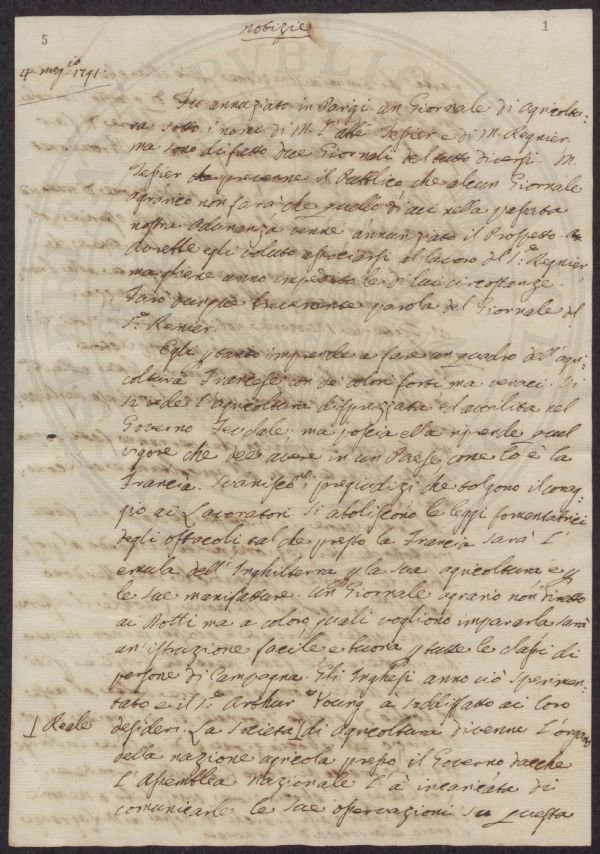 notizie
5
1
4. mag.io 1791.
Fu annuziato in Parigi un Giornale di Agricoltu-
ra sotto i nomi di M. l'abte Tesier e di M. Regnier,
ma sono difatto due Giornali del tutto diversi. M.
Tesier prevenne il Pubblico che alcun Giornale
agrario non farà che quello di cui nella passata
nostra Adunanza venne annunziato il Prospetto.
durette egli voluto associarsi al lavoro del S.r Regnier,
ma gliene anno impedito le di lui circostanze.
Farò dunque brevemente parola del Giornale del
S.r Renier.
Egli imprende a fare un quadro dell'agri-
coltura Francese con de' colori forti ma veraci. Si
si vede l'agricoltura disprezzata ed avvilita nel
Governo Feudale, ma poscia ella riprende quel
vigore che dee avere in un Paese come lo è la
Francia. Svaniscono i pregiudizi che tolgono il corag-
gio ai Lavoratori si aboliscono le leggi fomentatrici
degli ostacoli tal che presto la Francia sarà l'
emula dell'Inghilterra p la sua agricoltura e p
le sue manifatture. Un Giornale agrario non diretto
ai Dotti ma a coloro quali vogliono impararla sarà
un'istruzione facile e buona p tutte le classi di
persone di Campagna. Gli Inglesi anno ciò sperimen-
tato e il S.r Arthur Young à soddisfatto ai loro
desideri. La Società di Agricoltura divenne l'organo
⊥ Reale
della nazione agricola presso il Governo dacche
l'Assemblea nazionale l'à incaricata di
comunicarle le sue osservazioni su questa